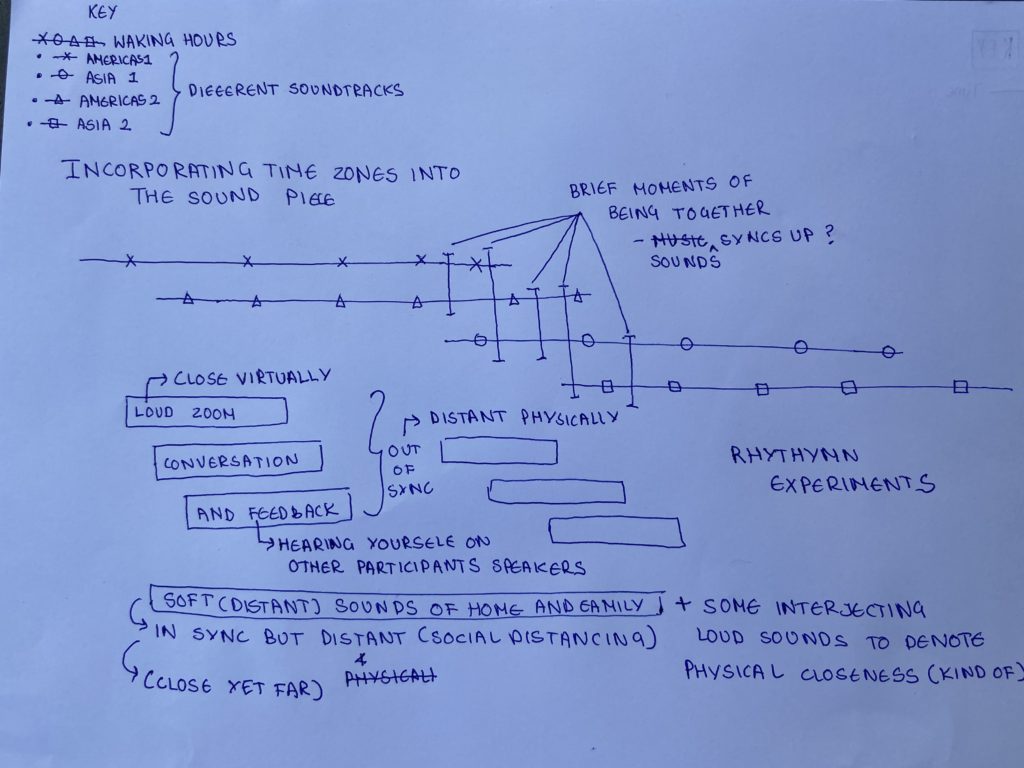 KEY
WAKING HOURS
AMERICAS1
ASIA 1
AMERICAS 2
ASIA 2
DIFFERENT SOUNDTRACKS
INCORPORATING TIME ZONES INTO
THE SOUND PIECE
BRIEF MOMENTS OF
BEING TOGETHER
- MUSIC ^ SYNCS UP ?
SOUNDS
CLOSE VIRTUALLY
LOUD ZOOM
CONVERSATION
AND FEEDBACK
OUT
OF
SYNC
DISTANT PHYSICALLY
RHYTHYMN
EXPERIMENTS
HEARING YOURSELF ON
OTHER PARTICIPANTS SPEAKERS
SOFT (DISTANT) SOUNDS OF HOME AND FAMILY
+ SOME INTERJECTING
LOUD SOUNDS TO DENOTE
PHYSICAL CLOSENESS (KIND OF)
IN SYNC BUT DISTANT (SOCIAL DISTANCING)
(CLOSE YET FAR)